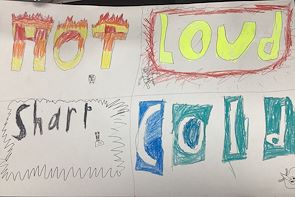 HOT
LOUd
Sharp
Cold